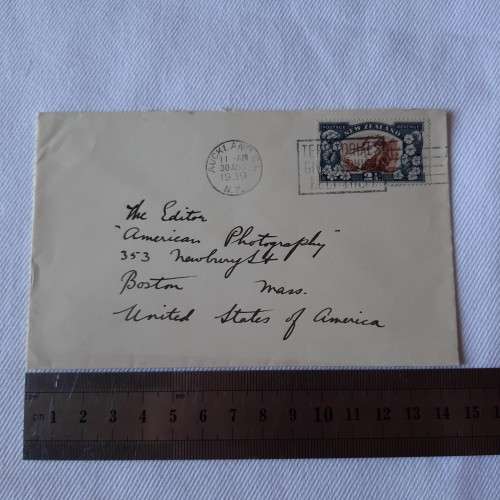 POSTAGE REVENUE
NEW ZEALAND
AUCKLAND
11-AM
1939
N.Z.
The Editor
"American Photography"
353 Newbury St
Boston Mass.
United States of America
cm 1 2 3 4 5 6 7 8 9 10 11 12 13 14 15